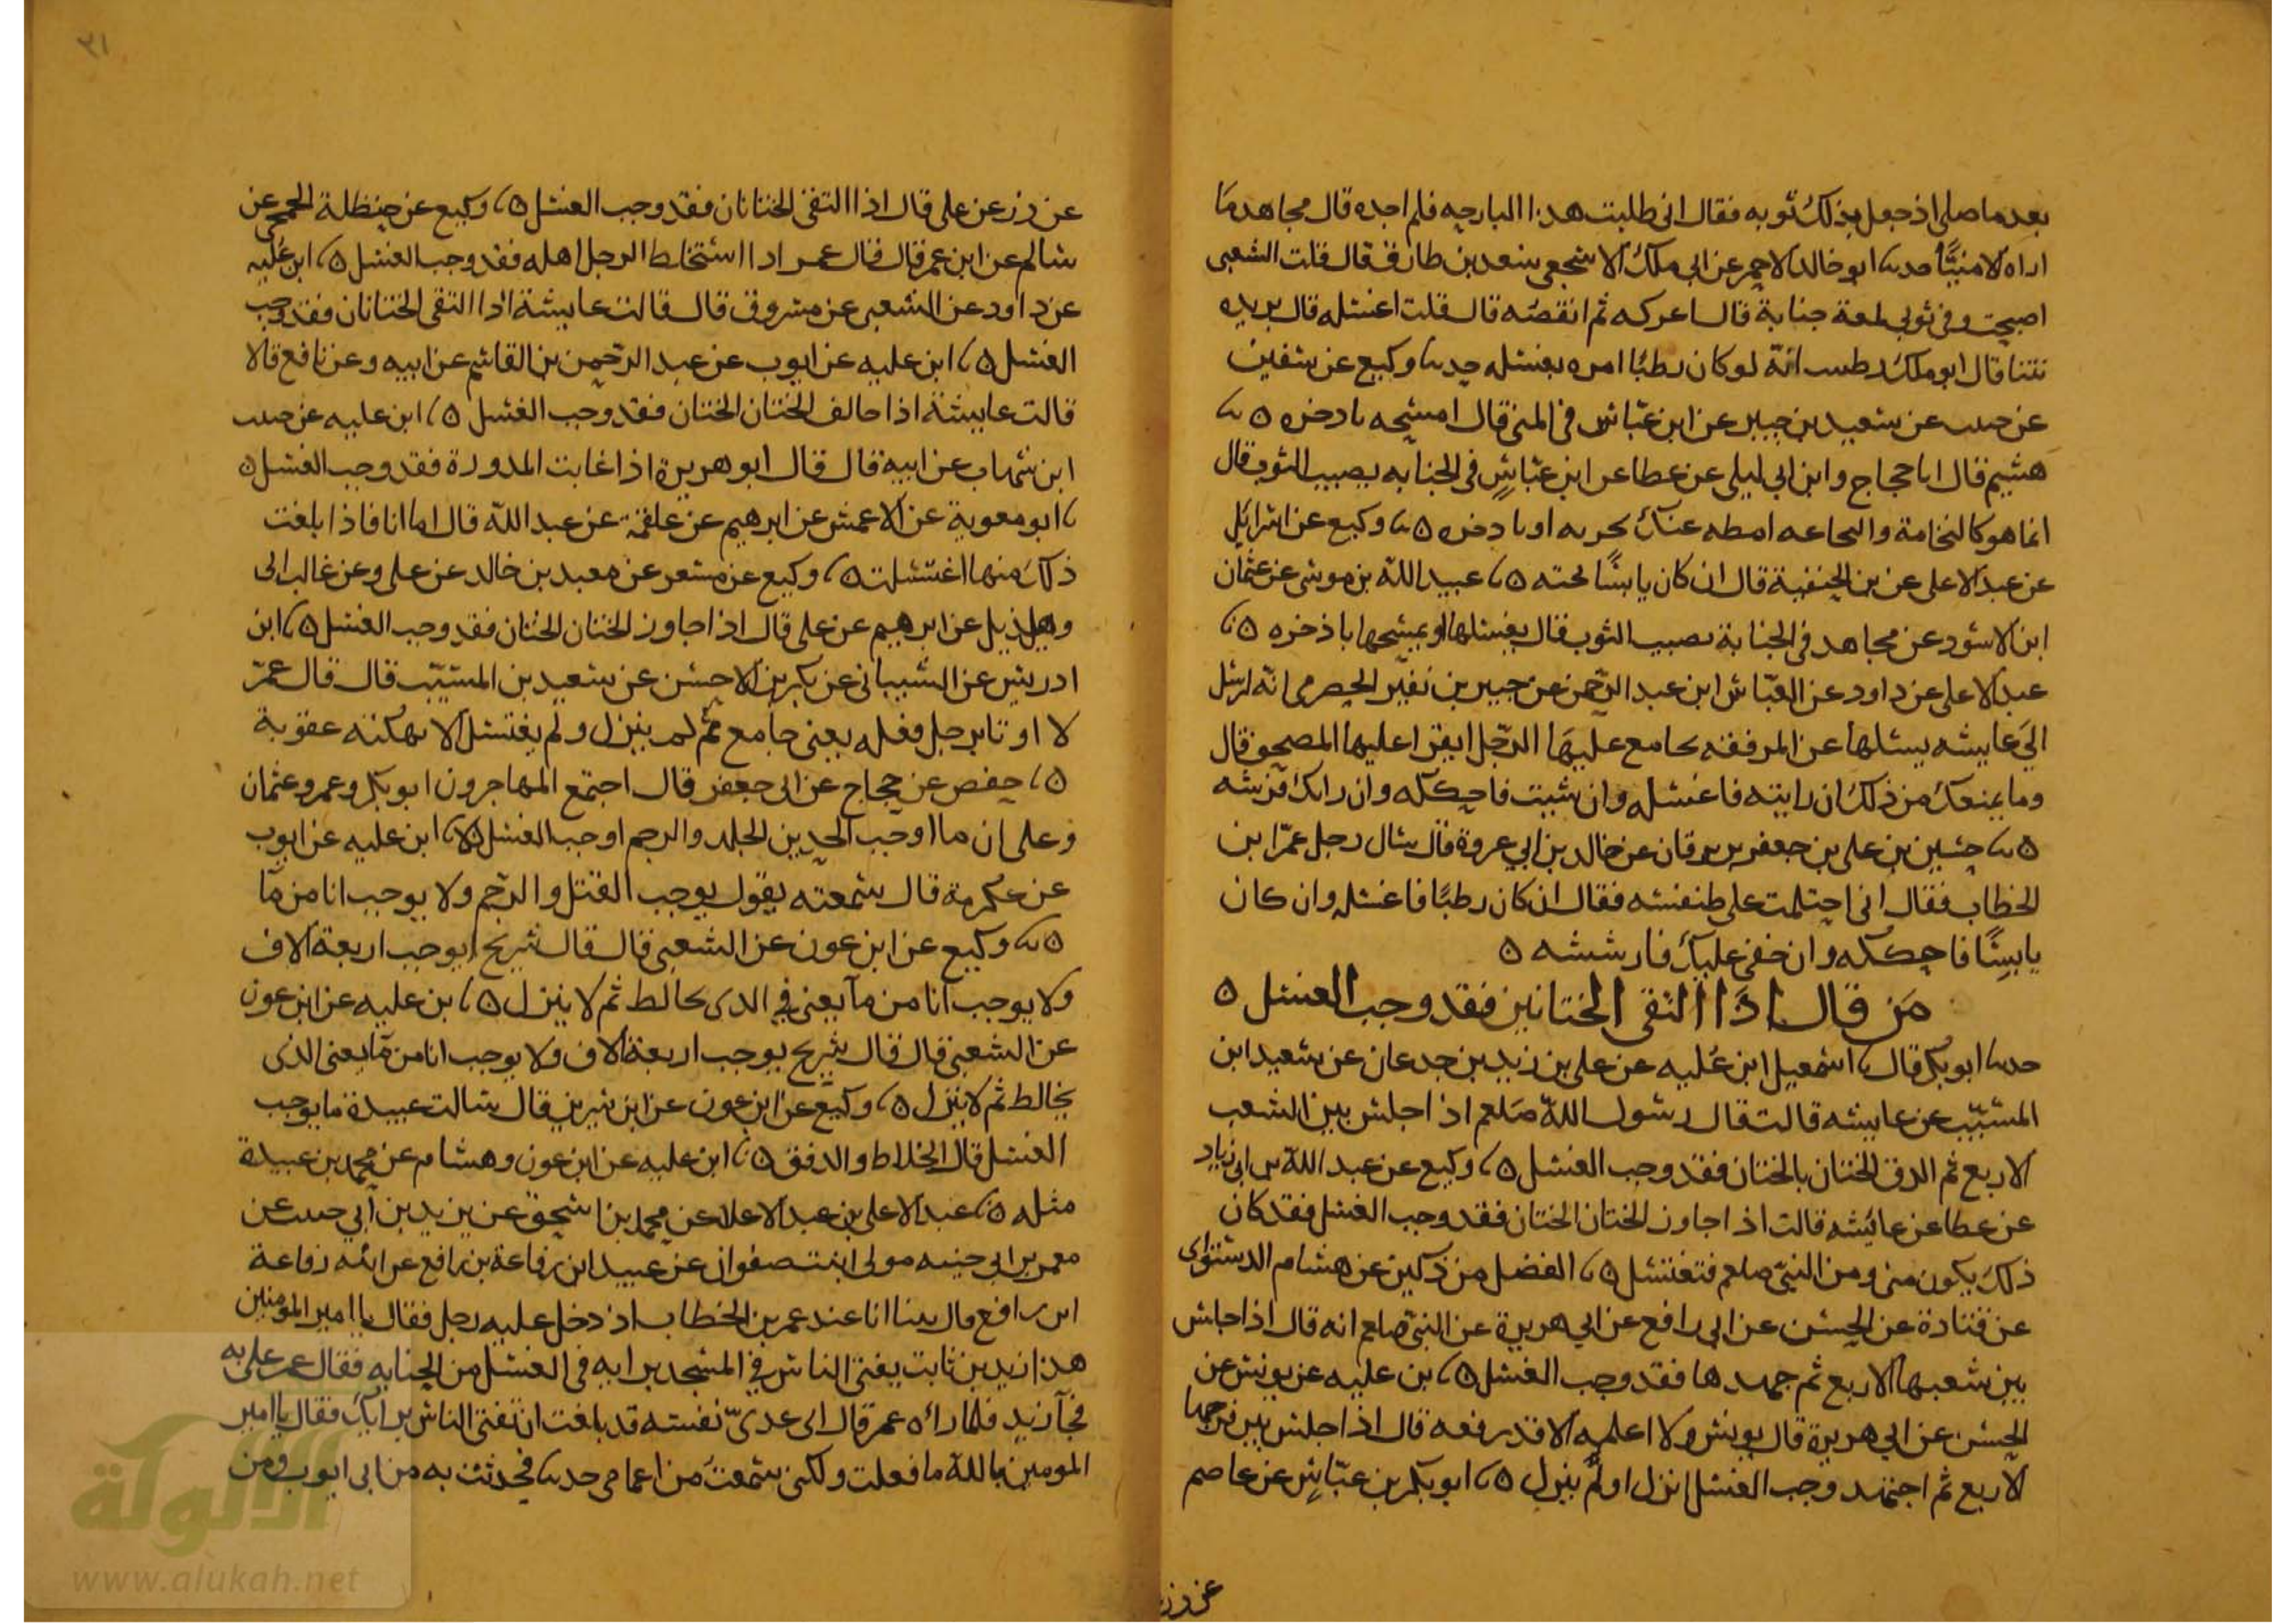 بعد ما صلى اذ جعل يدلك ثوبه فقال انى طلبت هذا البارحه فلم اجده قال مجاهد ما
اراه الا منيًّا حدثنا ابو خالد الاحمر عن ابى ملك الاشجعى سعد بن طارق قال قلت للشعبى
اصبحت وفى ثوبى لمعة جنابة قال اعركه ثم انفضه قال قلت اغسله قال يزيده
نتنا قال ابو ملك انه لو كان رطبًا امره بغسله حدثنا وكيع عن سفين
عن حبيب عن سعيد بن جبير عن ابن عباس فى المنى قال امسحه باذخره ن
هشيم قال انا حجاج وابن ابى ليلى عن عطا عن ابن عباس فى الجنابه يصيب الثوب قال
انما هو كالنخامة والنخاعه امطه عنك بخرقه او باذخره ن وكيع عن اسرائيل
عن عبد الاعلى عن بن الحنفية قال ان كان يابسًا فحته ن عبيد الله بن موسى عن عثمان
ابن الاسود عن مجاهد فى الجنابة تصيب الثوب قال يغسلها او يمسحها باذخره ن
عبد الاعلى عن داود عن العباس ابن عبد الرحمن عن جبير بن نفير الحضرمى انه ارسل
الى عايشه يسئلها عن المرفقه يجامع عليها الرجل ايقرا عليها المصحف قال
وما يمنعك من ذلك ان رايته فاغسله وان شيت فاحككه وان رابك فرشه
ن حسين بن على بن جعفر بن برقان عن خالد بن ابى عروة قال سال رجل عمر ابن
الخطاب فقال انى احتلمت على طنفسه فقال ان كان رطبًا فاغسله وان كان
يابسًا فاحككه وان خفى عليك فارششه ن
من قال اذا التقى الختانين فقد وجب الغسل ن
حدثنا ابو بكر قال اسمعيل ابن عُليه عن على بن زيد بن جدعان عن سعيد ابن
المسيّب عن عايشه قالت قال رسول الله صلعم اذا جلس بين الشعب
الاربع ثم الزق الختان بالختان فقد وجب الغسل ن وكيع عن عبد الله بن ابى زياد
عن عطا عن عائشه قالت اذا جاوز الختان الختان فقد وجب الغسل فقد كان
ذلك يكون منى ومن النبى صلعم فنغتسل ن الفضل من ذكين عن هشام الدستوائى
عن قتادة عن الحسن عن ابى رافع عن ابى هريرة عن النبى صلعم انه قال اذا جلس
بين شعبها الاربع ثم جهدها فقد وجب الغسل ن بن عليه عن يونس عن
الحسن عن ابى هريرة قال يونس ولا اعلمه الا قد رفعه قال اذا جلس بين فرجها
الاربع ثم اجتهد وجب الغسل انزل او لم ينزل ن ابو بكر بن عياش عن عاصم
عن زر
٣١
عن زر عن على قال اذا التقى الختانان فقد وجب الغسل ن وكيع عن حنظلة الجمحى عن
سالم عن ابن عمر قال قال عمر اذا استخلط الرجل اهله فقد وجب الغسل ن ابن عُليه
عن داود عن الشعبى عن مسروق قال قالت عايشة اذا التقى الختانان فقد وجب
الغسل ن ابن عليه عن ايوب عن عبد الرحمن بن القاسم عن ابيه وعن نافع قالا
قالت عايشة اذا خالف الختان الختان فقد وجب الغسل ن ابن عليه عن حبيب
ابن شهاب عن ابيه قال قال ابو هريرة اذا غابت المدورة فقد وجب الغسل ن
ابو معوية عن الاعمش عن ابرهيم عن علقمة عن عبد الله قال اما انا فاذا بلغت
ذلك منها اغتسلت ن وكيع عن مسعر عن معبد بن خالد عن على وعن غالب ابى
وهلذيل عن ابرهيم عن على قال اذا جاوز الختان الختان فقد وجب الغسل ن ابن
ادريس عن الشيبانى عن بكير بن الاخنس عن سعيد بن المسيّب قال قال عمر
لا اوتا برجل فعله يعنى جامع ثم لم ينزل ولم يغتسل الا نهكته عقوبة
ن حفص عن حجاج عن ابى جعفر قال اجتمع المهاجرون ابو بكر وعمر وعثمان
وعلى ان ما اوجب الحدين الجلد والرجم اوجب الغسل ن ابن عليه عن ايوب
عن عكرمة قال سمعته يقول يوجب القتل والرجم ولا يوجب انا من ما
ن وكيع عن ابن عون عن الشعبى قال قال شريح ايوجب اربعة الاف
ولا يوجب انا من ما يعنى فى الذى يخالط ثم لا ينزل ن بن عليه عن ابن عون
عن الشعبى قال قال شريح يوجب اربعة الاف ولا يوجب انا من ما يعنى الذى
يخالط ثم لا ينزل ن وكيع عن ابن عون عن ابن سيرين قال سالت عبيدة ما يوجب
الغسل قال الخلاط والدفق ن ابن عليه عن ابن عون وهشام عن محمد بن عبيدة
مثله ن عبد الاعلى بن عبد الاعلا عن محمد بن اسحق عن يزيد بن ابى حبيب عن
معمر بن ابى حييه مولى ابنت صفوان عن عبيد ابن رفاعة بن رافع عن ابيه رفاعة
ابن رافع قال بينا انا عند عمر بن الخطاب اذ دخل عليه رجل فقال يا امير المومنين
هذا زيد بن ثابت يفتى الناس فى المسجد برايه فى الغسل من الجنابه فقال عمر على به
فجآ زيد فلما رآه عمر قال اى عدىّ نفسه قد بلغت ان تفتى الناس برايك فقال يا امير
المومنين بالله ما فعلت ولكنى سمعت من اعمامى حديثا فحدثت به من ابى ايوب ومن
الألوكة
www.alukah.net